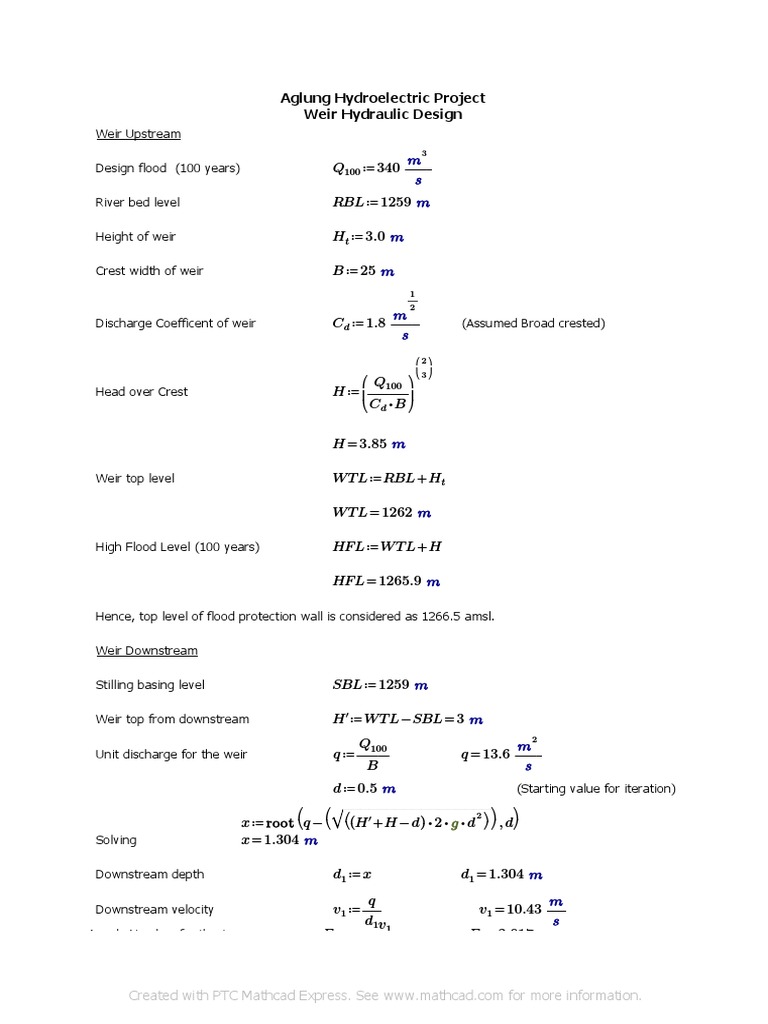 Aglung Hydroelectric Project
Weir Hydraulic Design
Weir Upstream
Design flood (100 years) Q₁₀₀ := 340 m³/s
River bed level RBL := 1259 m
Height of weir Hₜ := 3.0 m
Crest width of weir B := 25 m
Discharge Coefficent of weir C_d := 1.8 m^(1/2)/s (Assumed Broad crested)
Head over Crest H := (Q₁₀₀/(C_d · B))^(2/3)
H = 3.85 m
Weir top level WTL := RBL + Hₜ
WTL = 1262 m
High Flood Level (100 years) HFL := WTL + H
HFL = 1265.9 m
Hence, top level of flood protection wall is considered as 1266.5 amsl.
Weir Downstream
Stilling basing level SBL := 1259 m
Weir top from downstream H' := WTL − SBL = 3 m
Unit discharge for the weir q := Q₁₀₀/B q = 13.6 m²/s
d := 0.5 m (Starting value for iteration)
x := root(q − (√((H' + H − d) · 2 · g · d²)), d)
Solving x = 1.304 m
Downstream depth d₁ := x d₁ = 1.304 m
Downstream velocity v₁ := q/d₁ v₁ = 10.43 m/s
v₁
Created with PTC Mathcad Express. See www.mathcad.com for more information.